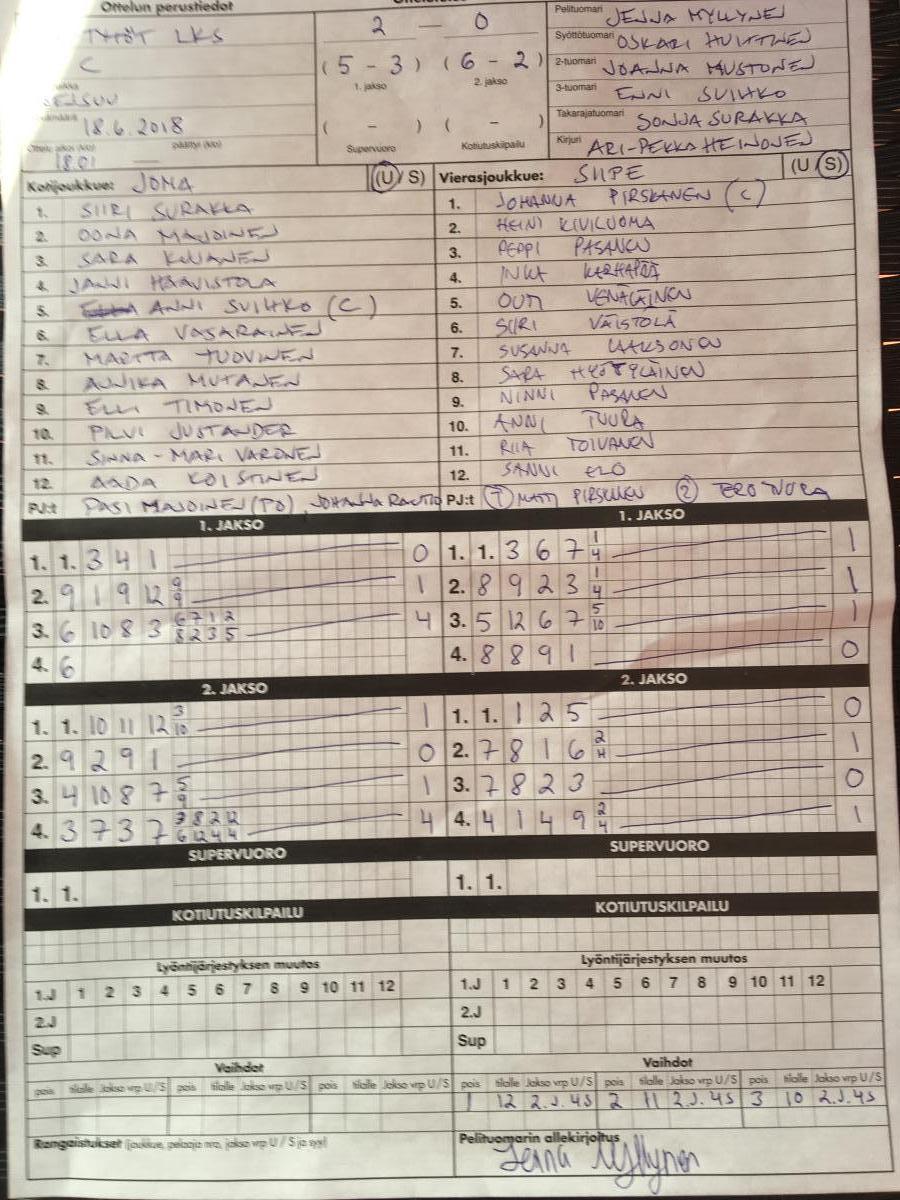 Ottelun perustiedot
TYTÖT LKS
C
18.6.2018
Ottelu alkoi (klo) päättyi (klo)
18.01 —
2 — 0
(5 - 3) (6 - 2)
1. jakso 2. jakso
( - ) ( - )
Supervuoro Kotiutuskilpailu
Pelituomari JENNA MYLLYNEN
Syöttötuomari OSKARI HUITTINEN
2-tuomari JOANNA MUSTONEN
3-tuomari ENNI SVIHKO
Takarajatuomari SONJA SURAKKA
Kirjuri ARI-PEKKA HEINONEN
Kotijoukkue: JOMA (U / S)
1. SIIRI SURAKKA
2. OONA MAJOINEN
3. SARA
4. JANNI HAAVISTOLA
5. ANNI SVIHKO (C)
6. ELLA VASARAINEN
7. MARTTA TUOVINEN
8. ANNIKA MUTANEN
9. ELLI TIMONEN
10. PILVI JUSTANDER
11. SINNA-MARI VARONEN
12. AADA KOISTINEN
PJ:t PASI MAJOINEN (TO), JOHANNA RAUTIO
Vierasjoukkue: SIIPE (U / S)
1. JOHANNA PIRSKANEN (C)
2. HEINI KIVILUOMA
3. PEPPI PASANEN
4. INKA KARHAPÄÄ
5. OUTI VENÄLÄINEN
6. SIIRI VÄISTÖLÄ
7. SUSANNA LAAKSONEN
8. SARA HYÖTYLÄINEN
9. NINNI PASANEN
10. ANNI TUURA
11. RIIA TOIVANEN
12. SANNI ELO
PJ:t 1 MATTI PIRSKANEN 2 TERO TUURA
1. JAKSO
1. 1. 3 4 1 0
2. 9 1 9 12 9 9 1
3. 6 10 8 3 6 7 1 2 8 2 3 5 4
4. 6
1. JAKSO
1. 1. 3 6 7 1 4 1
2. 8 9 2 3 1 4 1
3. 5 12 6 7 5 10 1
4. 8 8 9 1 0
2. JAKSO
1. 1. 10 11 12 3 10 1
2. 9 2 9 1 0
3. 4 10 8 7 5 9 1
4. 3 7 3 7 3 8 2 12 6 12 4 4 4
2. JAKSO
1. 1. 1 2 5 0
2. 7 8 1 6 2 4 1
3. 7 8 2 3 0
4. 4 1 4 9 2 4 1
SUPERVUORO
1. 1.
SUPERVUORO
1. 1.
KOTIUTUSKILPAILU
KOTIUTUSKILPAILU
Lyöntijärjestyksen muutos
1.J 1 2 3 4 5 6 7 8 9 10 11 12
2.J
Sup
Lyöntijärjestyksen muutos
1.J 1 2 3 4 5 6 7 8 9 10 11 12
2.J
Sup
Vaihdot
pois tilalle Jakso vrp U/S pois tilalle Jakso vrp U/S pois tilalle Jakso vrp U/S
Vaihdot
pois tilalle Jakso vrp U/S pois tilalle Jakso vrp U/S pois tilalle Jakso vrp U/S
1 12 2.J.4S 2 11 2.J.4S 3 10 2.J.4S
Rangaistukset (joukkue, pelaaja nro, jakso vrp U / S ja syy)
Pelituomarin allekirjoitus
Jenna Myllynen